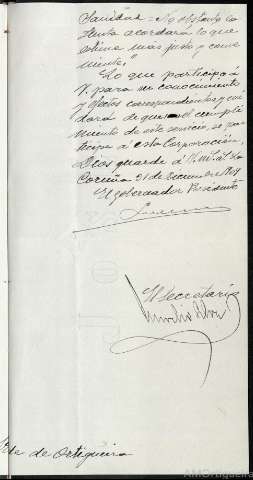 Sanidad = No obstante la
Junta acordará lo que
estime mas justo y conve
niente."
Lo que participo á
V. para su conocimiento
y efectos correspondientes y cui
dará de que del cumpli
miento de este servicio, se par
ticipe á esta Corporación.
Dios guarde á V. m. a. La
Coruña 21 de Diciembre 1907
El Gobernador Presidente
El Secretario
de Ortigueira
AMOrtigueira